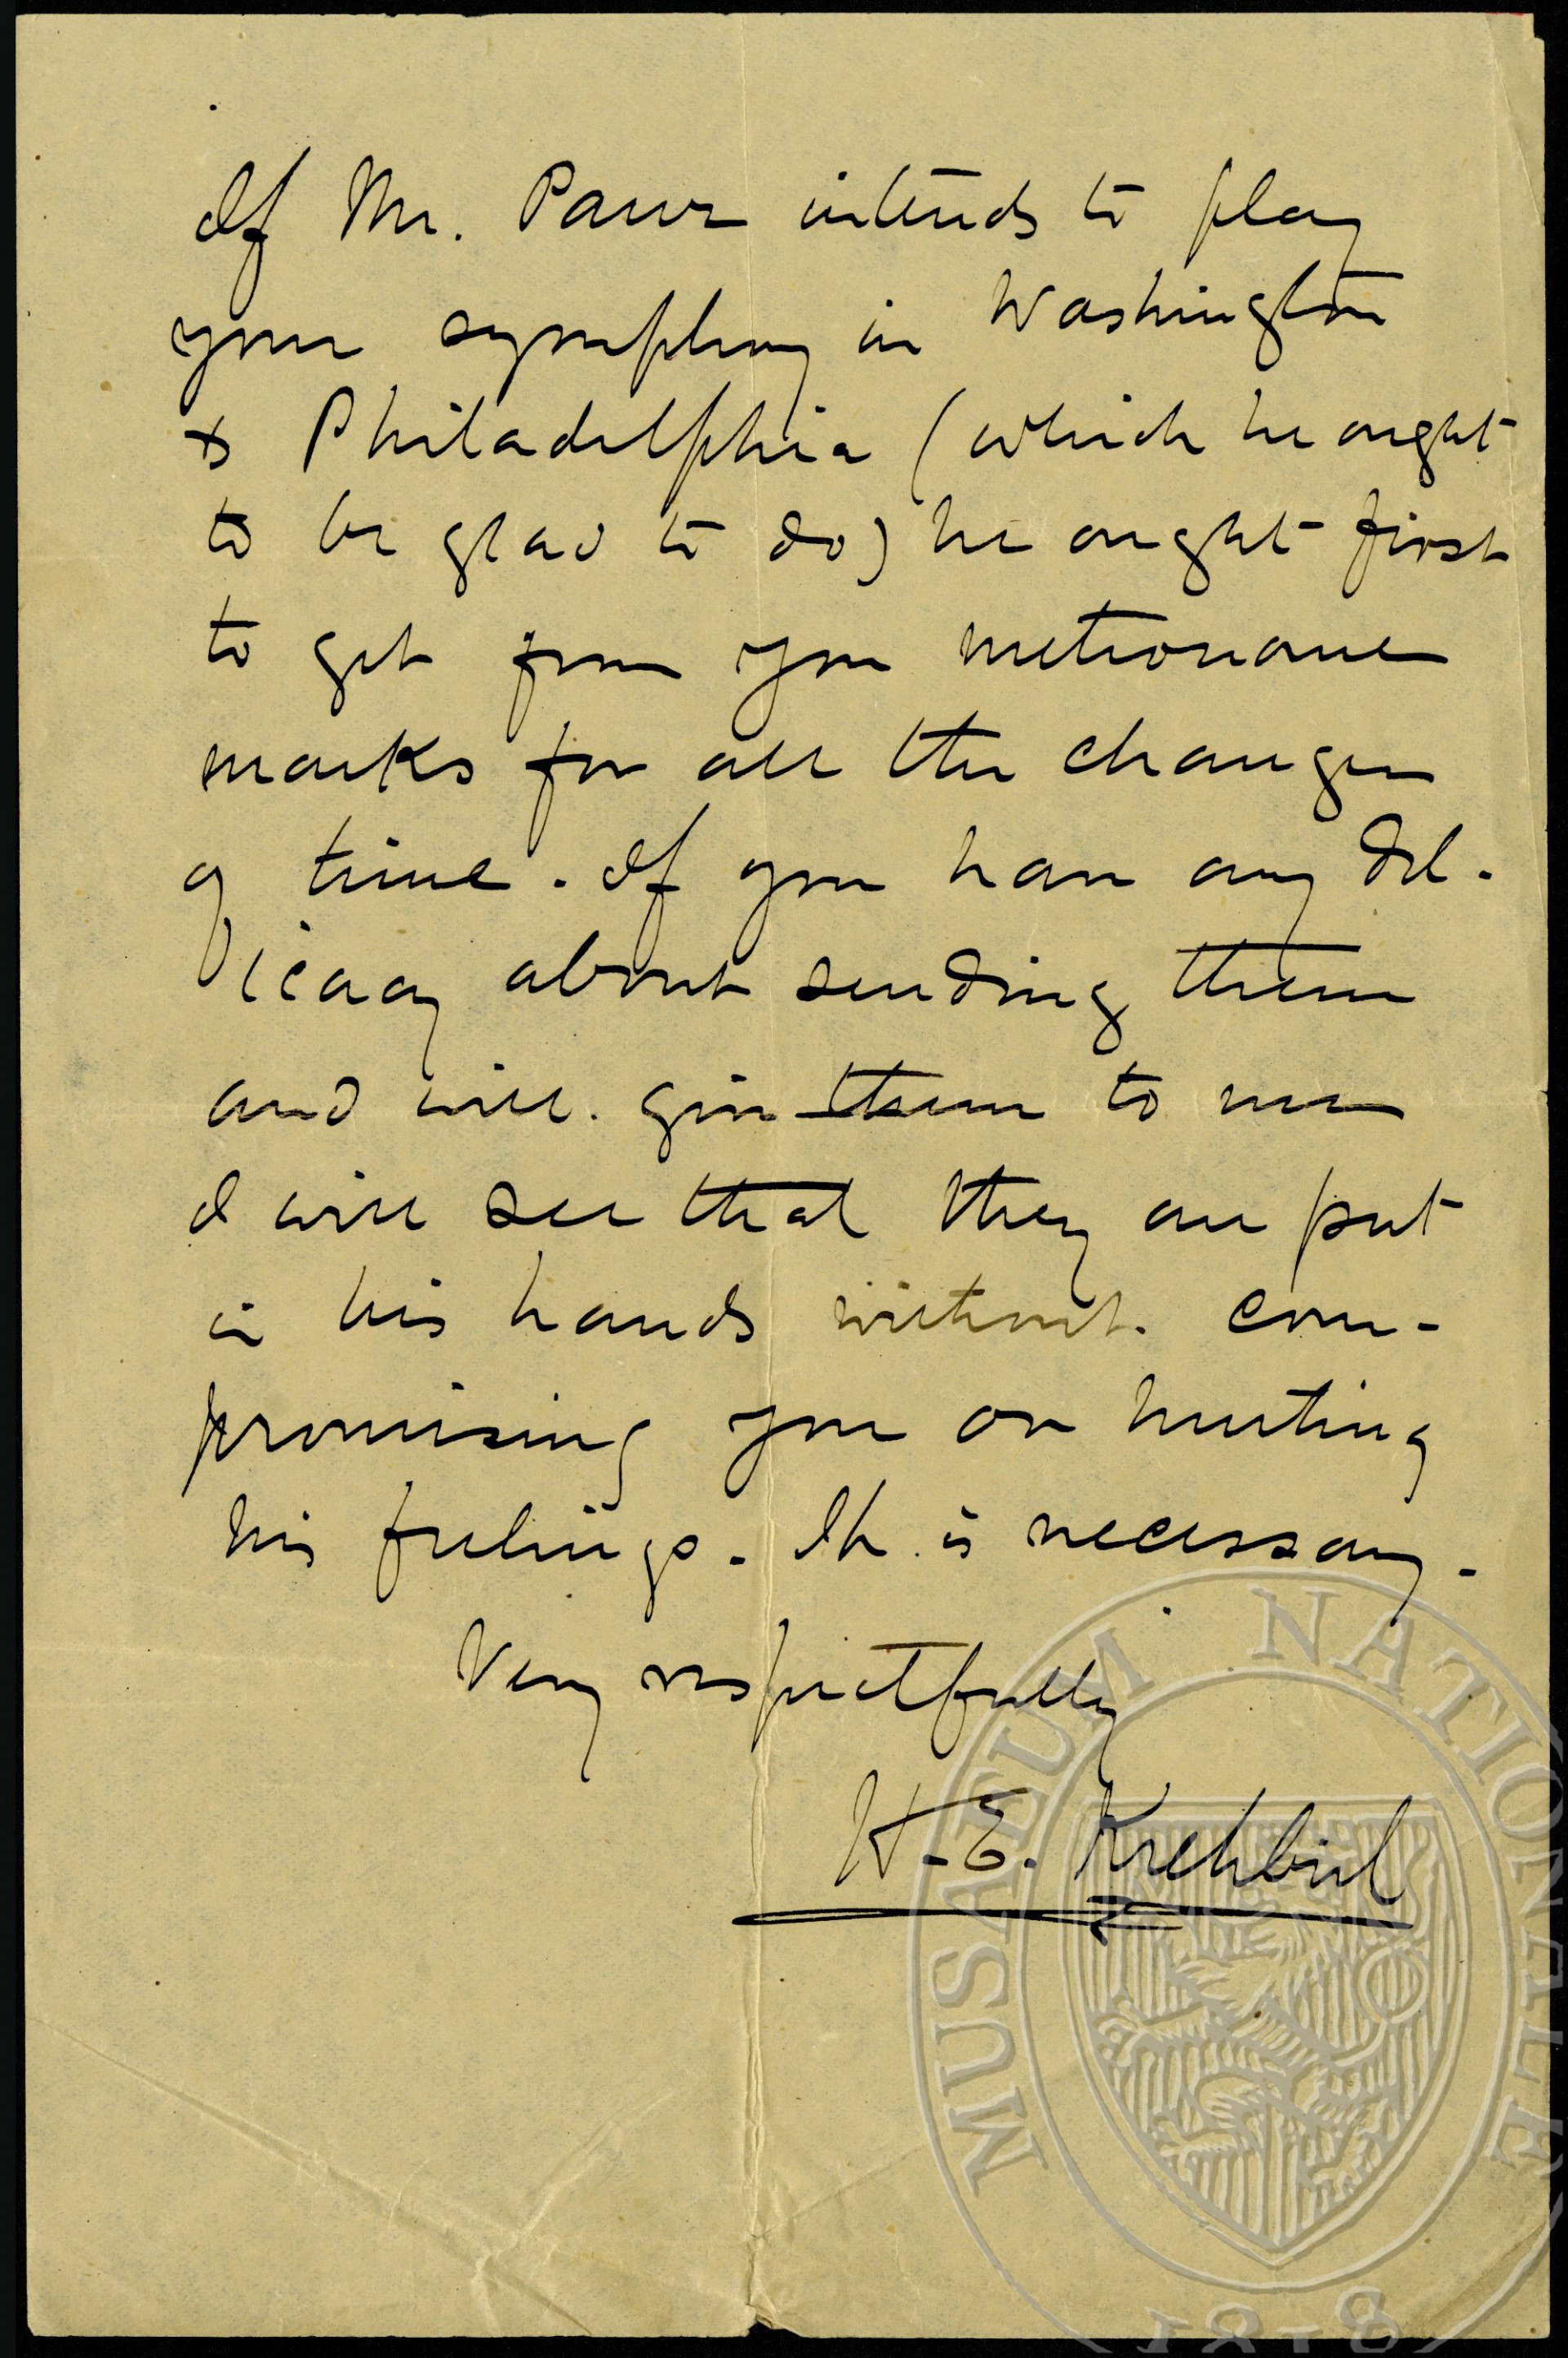 If Mr. Paur intends to play
your symphony in Washington
& Philadelphia (which he ought
to be glad to do) he ought first
to get from you metronome
marks for all the changes
of time. If you have any del-
icacy about sending them
and will give them to me
I will see that they are put
in his hands without com-
promising you or hurting
his feelings. It is necessary.
Very respectfully
H. E. Krehbiel
MUSAEUM NATIONALE
1818